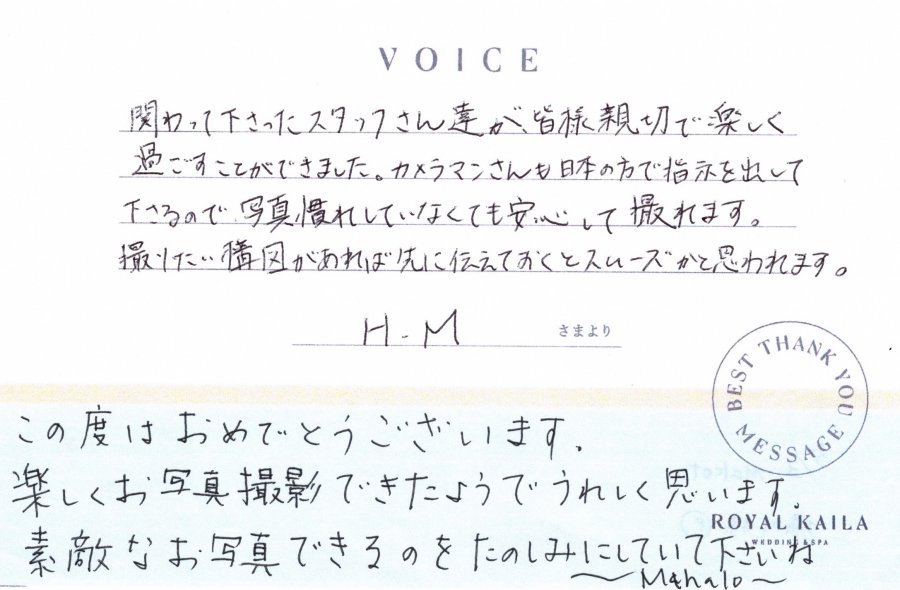 VOICE
関わって下さったスタッフさん達が、皆様親切で楽しく
過ごすことができました。カメラマンさんも日本の方で指示を出して
下さるので、写真慣れしていなくても安心して撮れます。
撮りたい構図があれば先に伝えておくとスムーズかと思われます。
H-M さまより
BEST THANK YOU MESSAGE
この度はおめでとうございます.
楽しくお写真撮影できたようでうれしく思います.
ROYAL KAILA
WEDDING & SPA
素敵なお写真できるのをたのしみにしていて下さいね
~Mahalo~